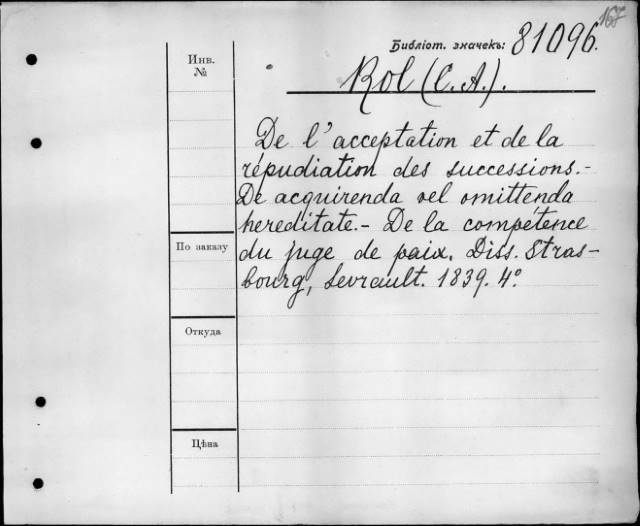 167
Библіот. значекъ: 81096.
Инв.
№
Rol (C. A.).
De l'acceptation et de la
répudiation des successions.-
De acquirenda vel omittenda
hereditate.- De la compétence
du juge de paix. Diss. Stras-
bourg, Levrault. 1839. 4°.
По заказу
Откуда
Цѣна